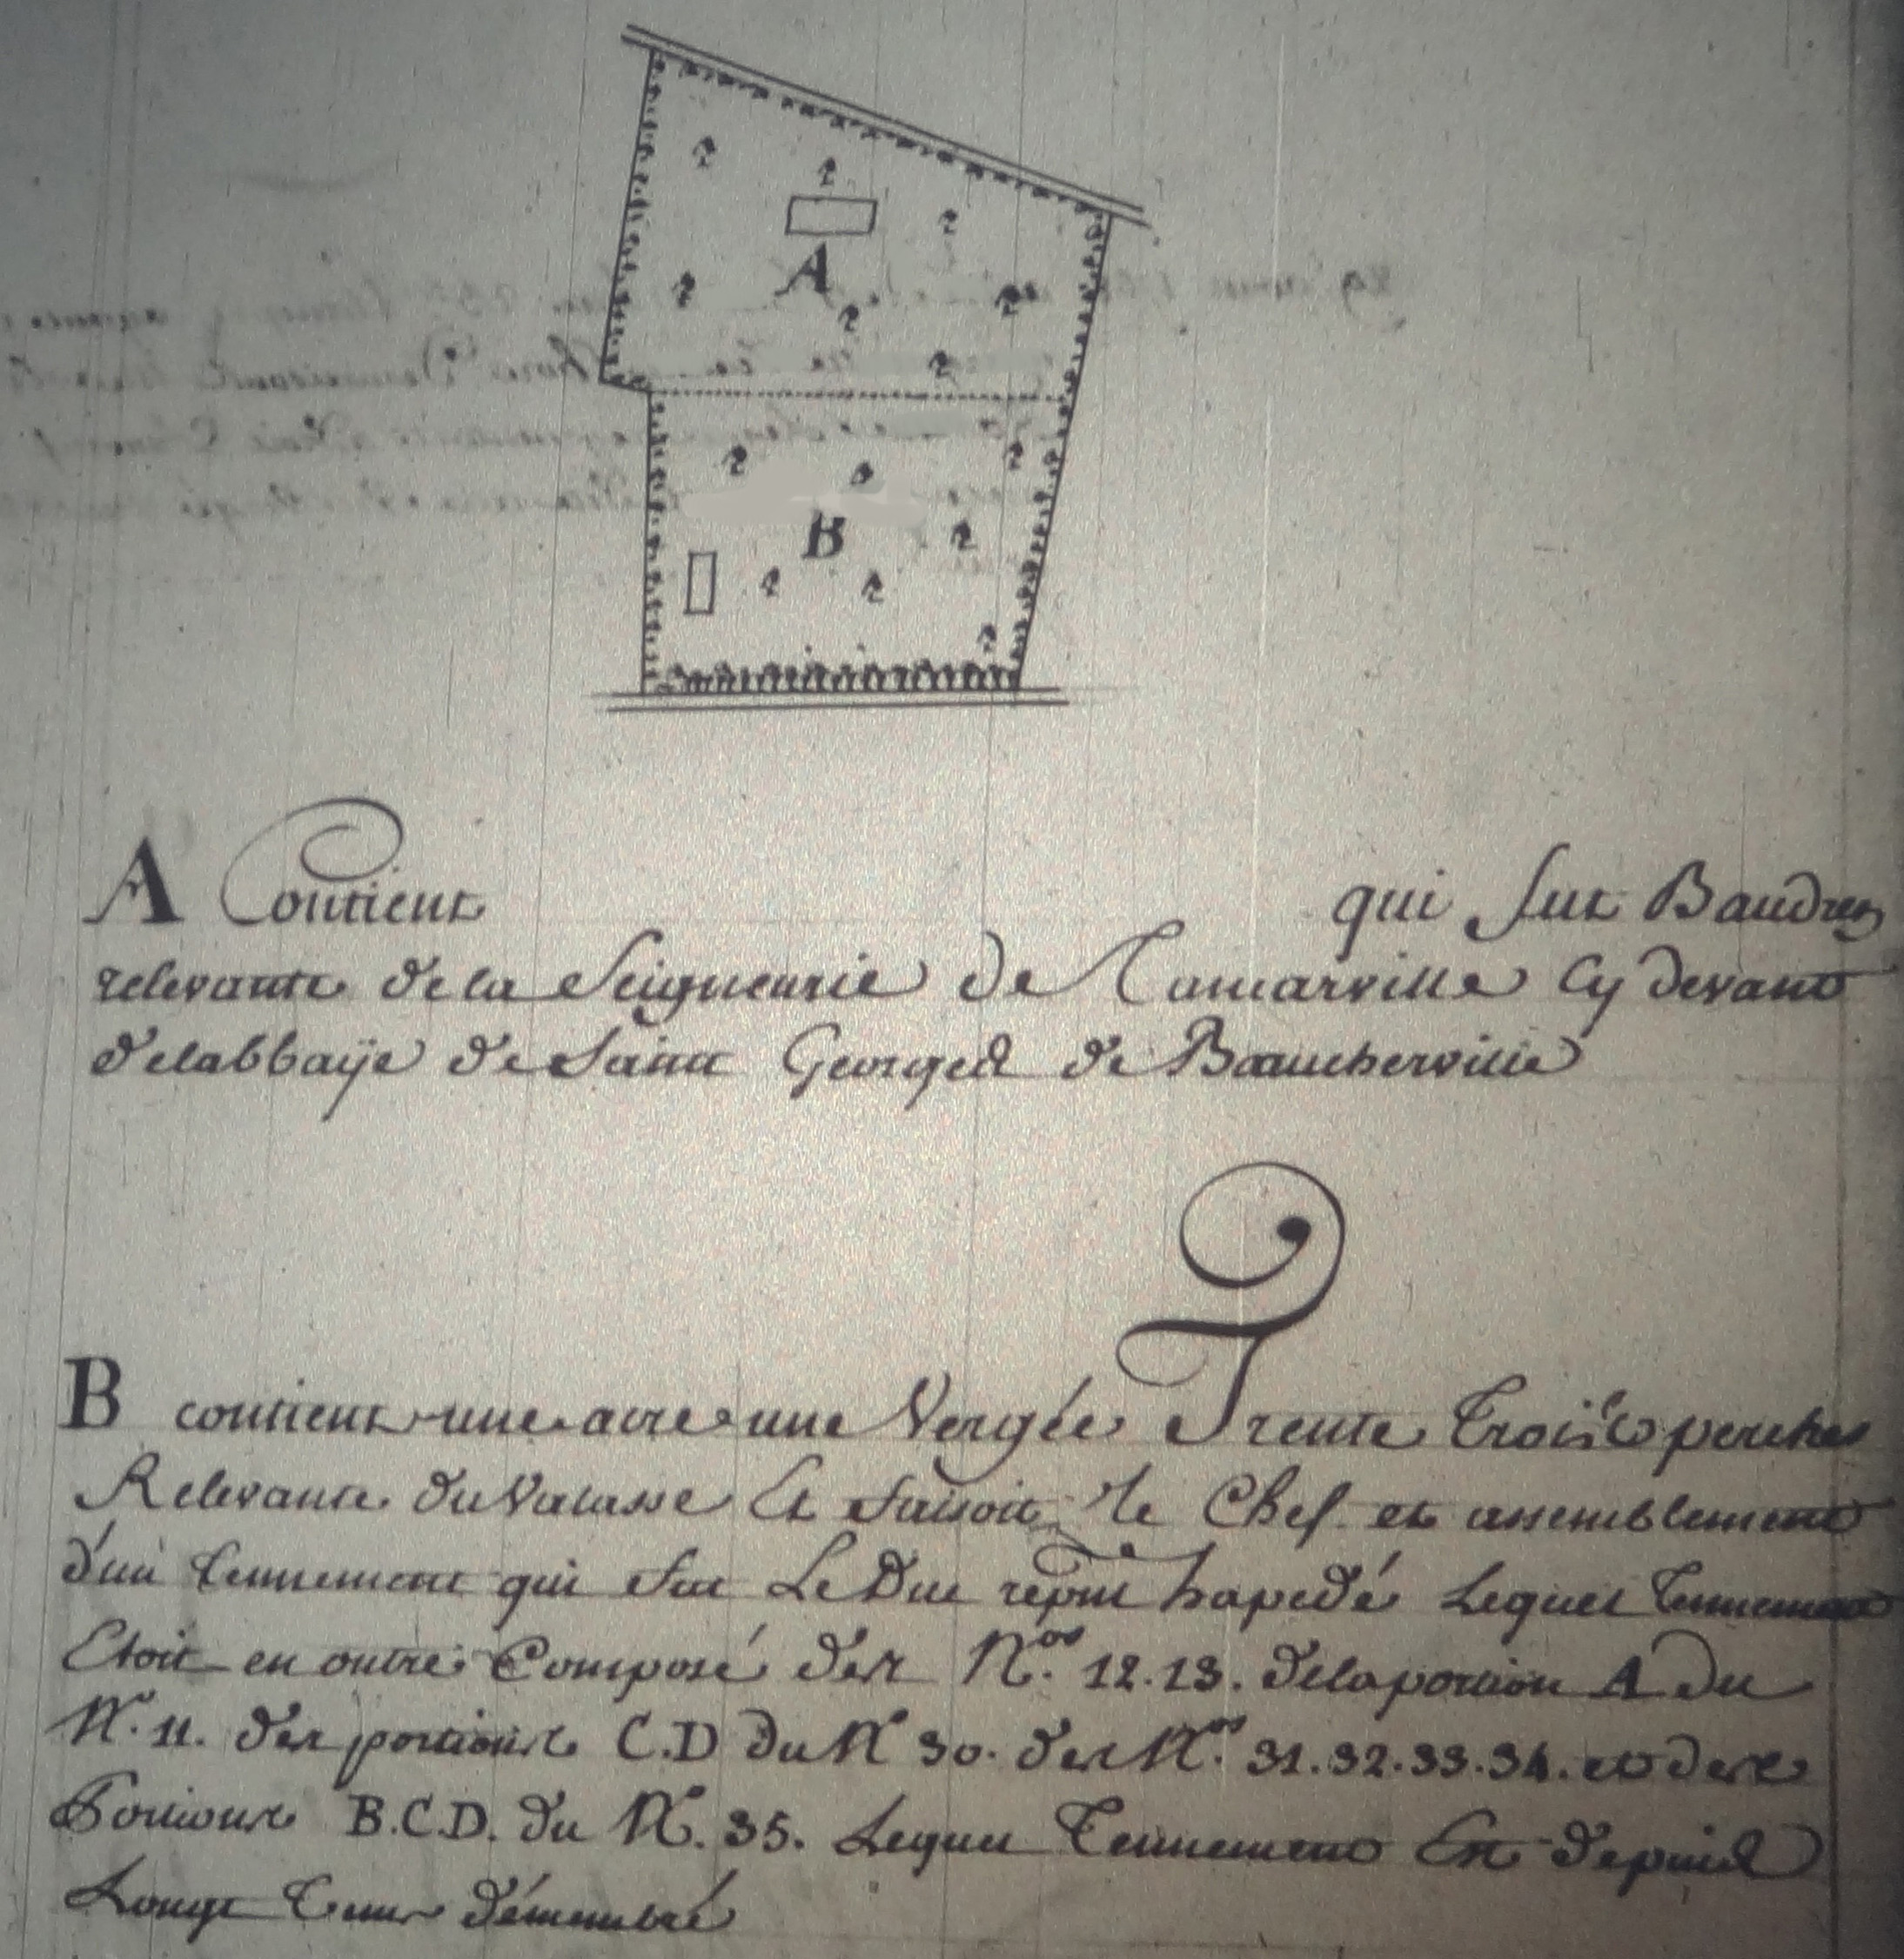 A
B
A Contient qui fut Baudrey
relevante de la Seigneurie de Tamarville Cy devant
de labbaÿe de Saint Georges de Baucherville
B contient une acre une Vergée Trente Trois perches
Relevante du Valasse Et faisoit le Chef et assemblement
d'un tennement qui fut Le Duc Lequel tennement
Etoit en outre Composé des Nos. 12.13. de la portion A du
N. 11. des portions C.D du N 30. des Nos. 31.32.33.34. et des
Portions B.C.D. du N. 35. Lequel Tennement Est depuis
Longt Tems démembré